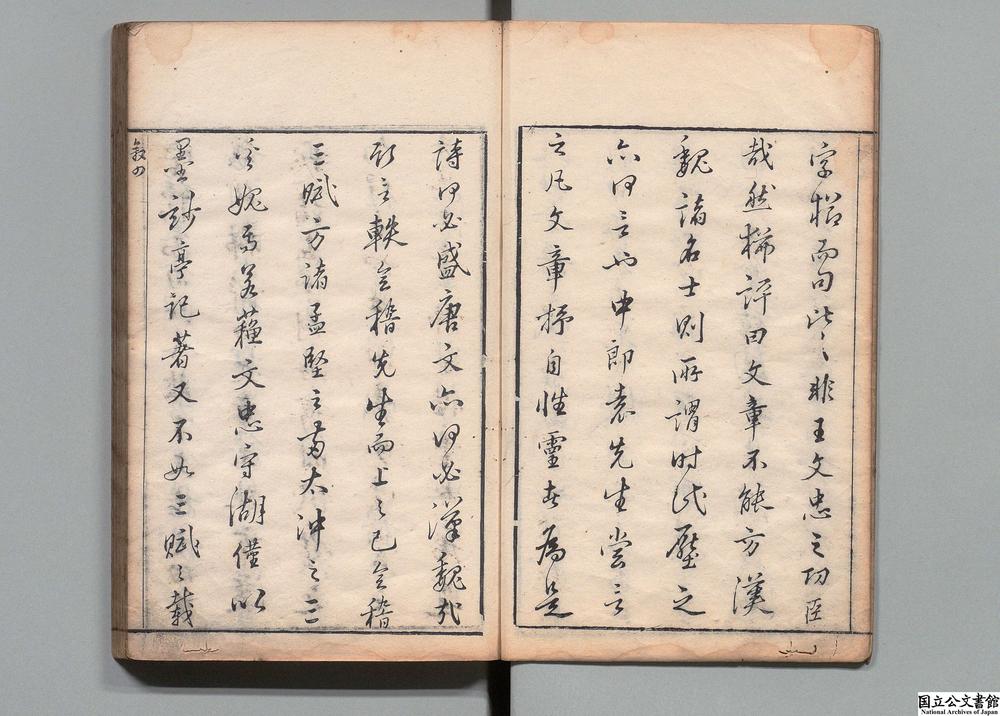 字櫛而句比之非王文忠之功臣
哉然評曰文章不能方漢
魏諸名士則所謂時代壓之
亦何言也中郎袁先生嘗言
之凡文章抒自性靈者為是
詩何必盛唐文亦何必漢魏
之軼會稽先生而上之已會稽
三賦方諸孟堅之兩太沖之三
豈媿焉若蘇文忠守湖僅以
墨妙亭記著又不如三賦之載
敘四
国立公文書館
National Archives of Japan